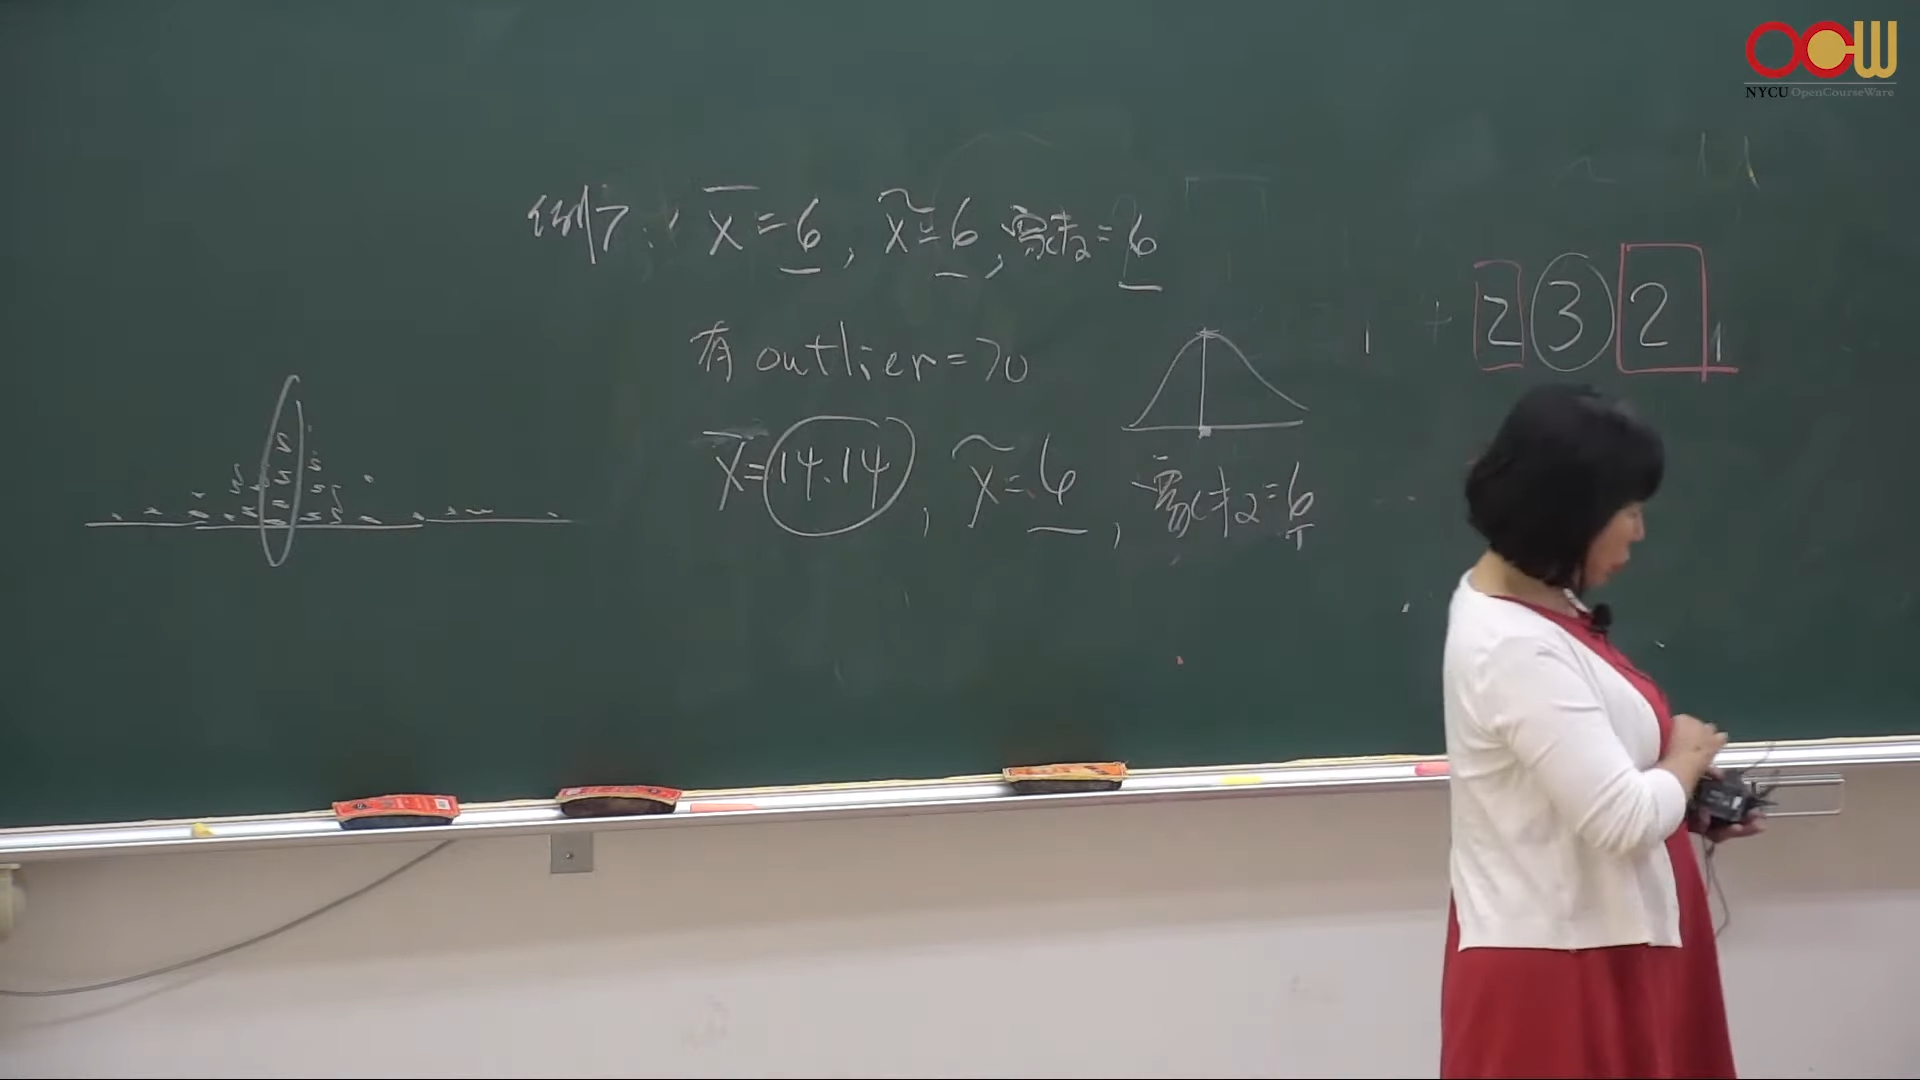 OCW
NYCU OpenCourseWare
例7: x̄ = 6, x̃ = 6, 眾數 = 6
2 3 2
有 outlier = 70
x̄ = 14.14, x̃ = 6, 眾數 = 6